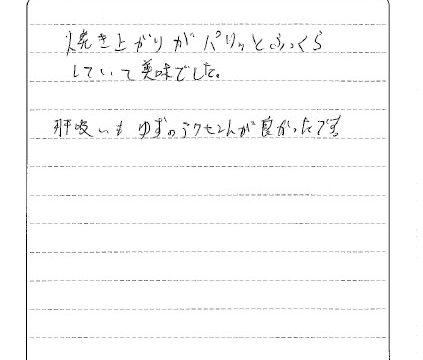 焼き上がりがパリッとふっくら
していて美味でした。
肝吸いもゆずのアクセントが良かったです